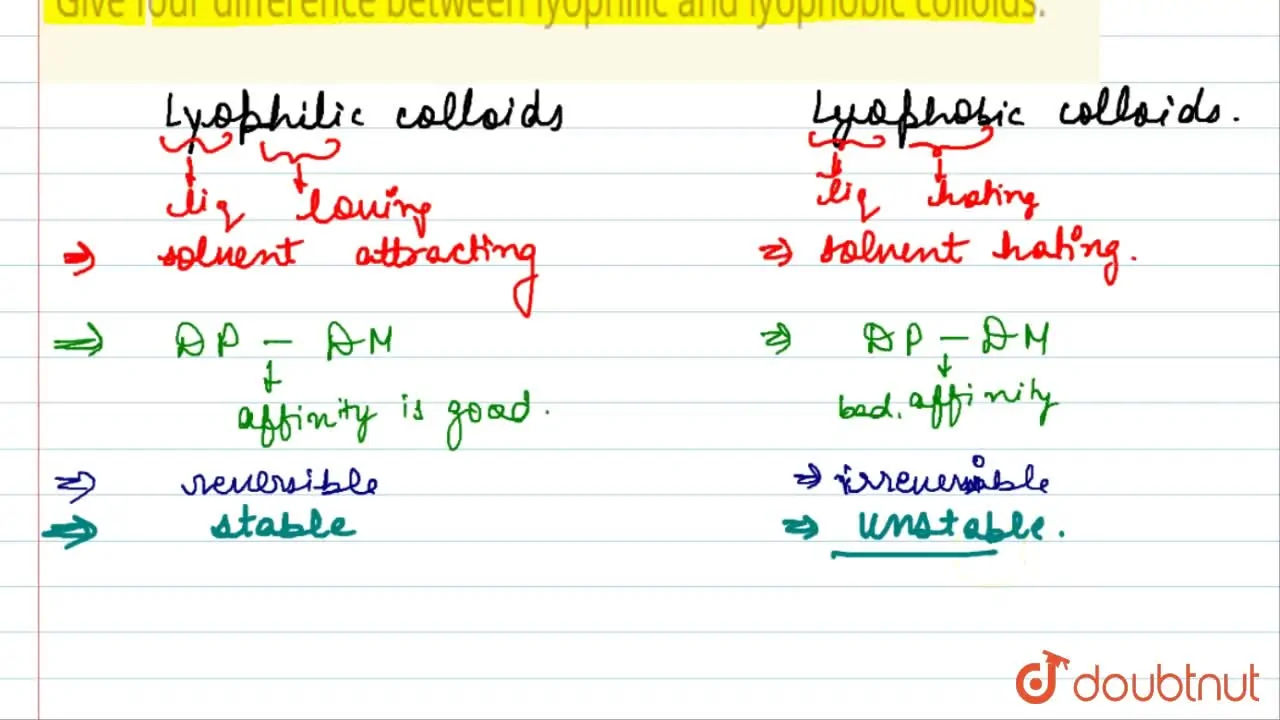 Give four difference between lyophilic and lyophobic colloids.
Lyophilic colloids Lyophobic colloids.
liq loving liq hating
⇒ solvent attracting ⇒ solvent hating.
⇒ DP – DM ⇒ DP – DM
affinity is good. bad. affinity
⇒ reversible ⇒ irreversible
⇒ stable ⇒ unstable.
doubtnut